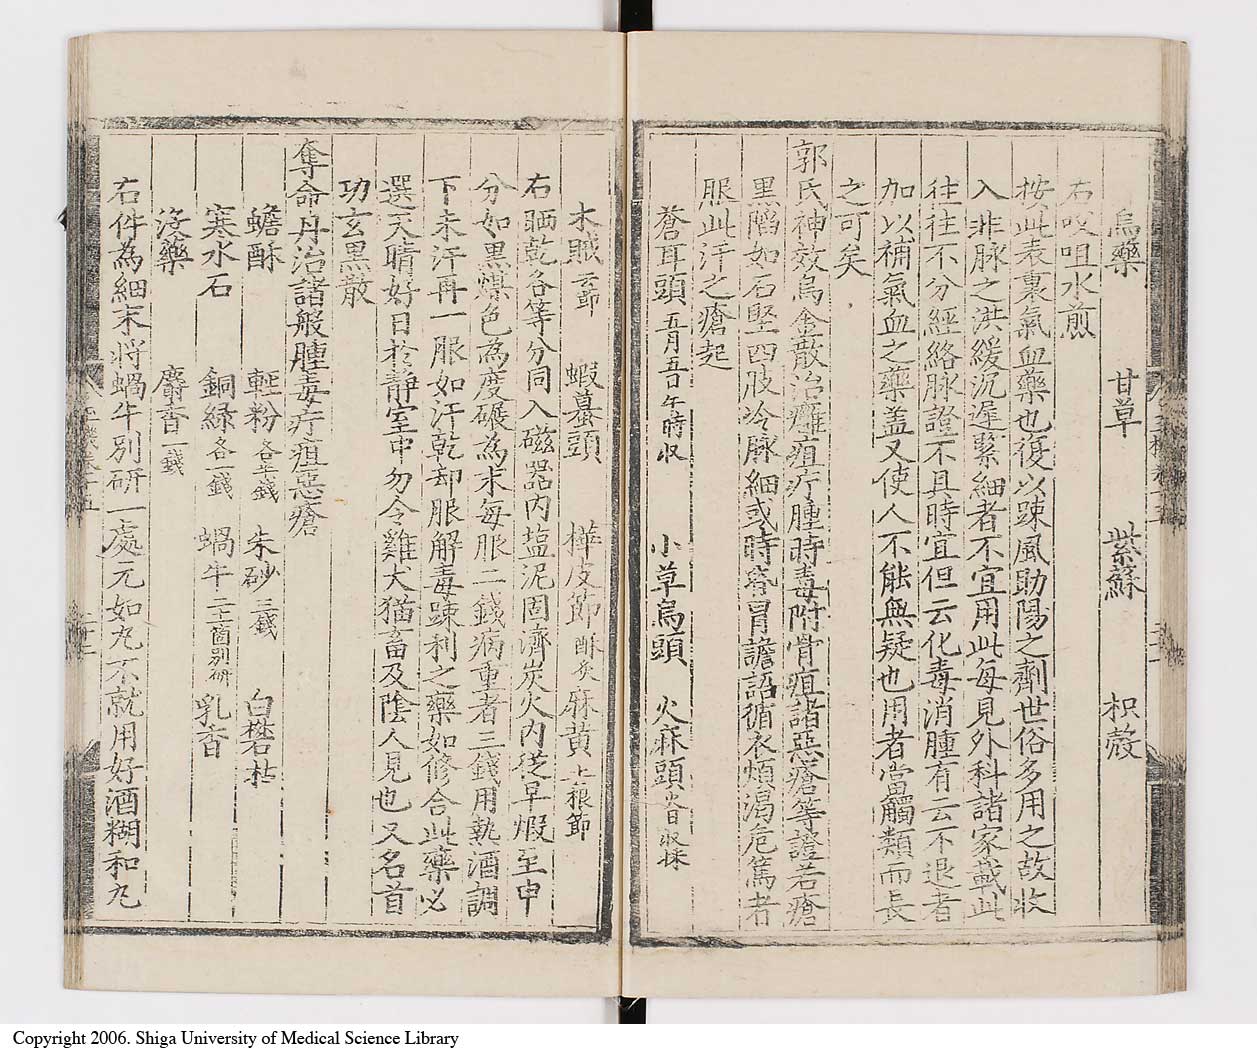 烏藥 甘草 紫蘇 枳殼
右㕮咀水煎
按此表裏氣血藥也復以踈風助陽之劑世俗多用之故收
入非脉之洪緩沉遲緊細者不宜用此每見外科諸家載此
往往不分經絡脉證不具時宜但云化毒消腫有云不退者
加以補氣血之藥盖又使人不能無疑也用者當觸類而長
之可矣
郭氏神效烏金散治癰疽疔腫時毒附骨疽諸惡瘡等證若瘡
黑陷如石堅四肢冷脉細或時昏冒譫語循衣煩渴危篤者
服此汗之瘡起
蒼耳頭五月五日午時收 小草烏頭 火麻頭 收採
木賊去節 蝦蟇頭 樺皮節酥炙 麻黄去根節
右晒乾各等分同入磁器内塩泥固濟炭火内從早煆至申
分如黒煤色為度碾為末每服二錢病重者三錢用熱酒調
下未汗再一服如汗乾却服解毒踈利之藥如修合此藥必
選天晴好日於静室中勿令雞犬猫畜及陰人見也又名首
功玄黒散
奪命丹治諸般腫毒疔疽惡瘡
蟾酥 輕粉各半錢 朱砂三錢 白礬枯
寒水石 銅緑各一錢 蝸牛二十一箇别研 乳香
没藥 麝香一錢
右件為細末將蝸牛别研一處元如丸不就用好酒糊和丸
Copyright 2006. Shiga University of Medical Science Library